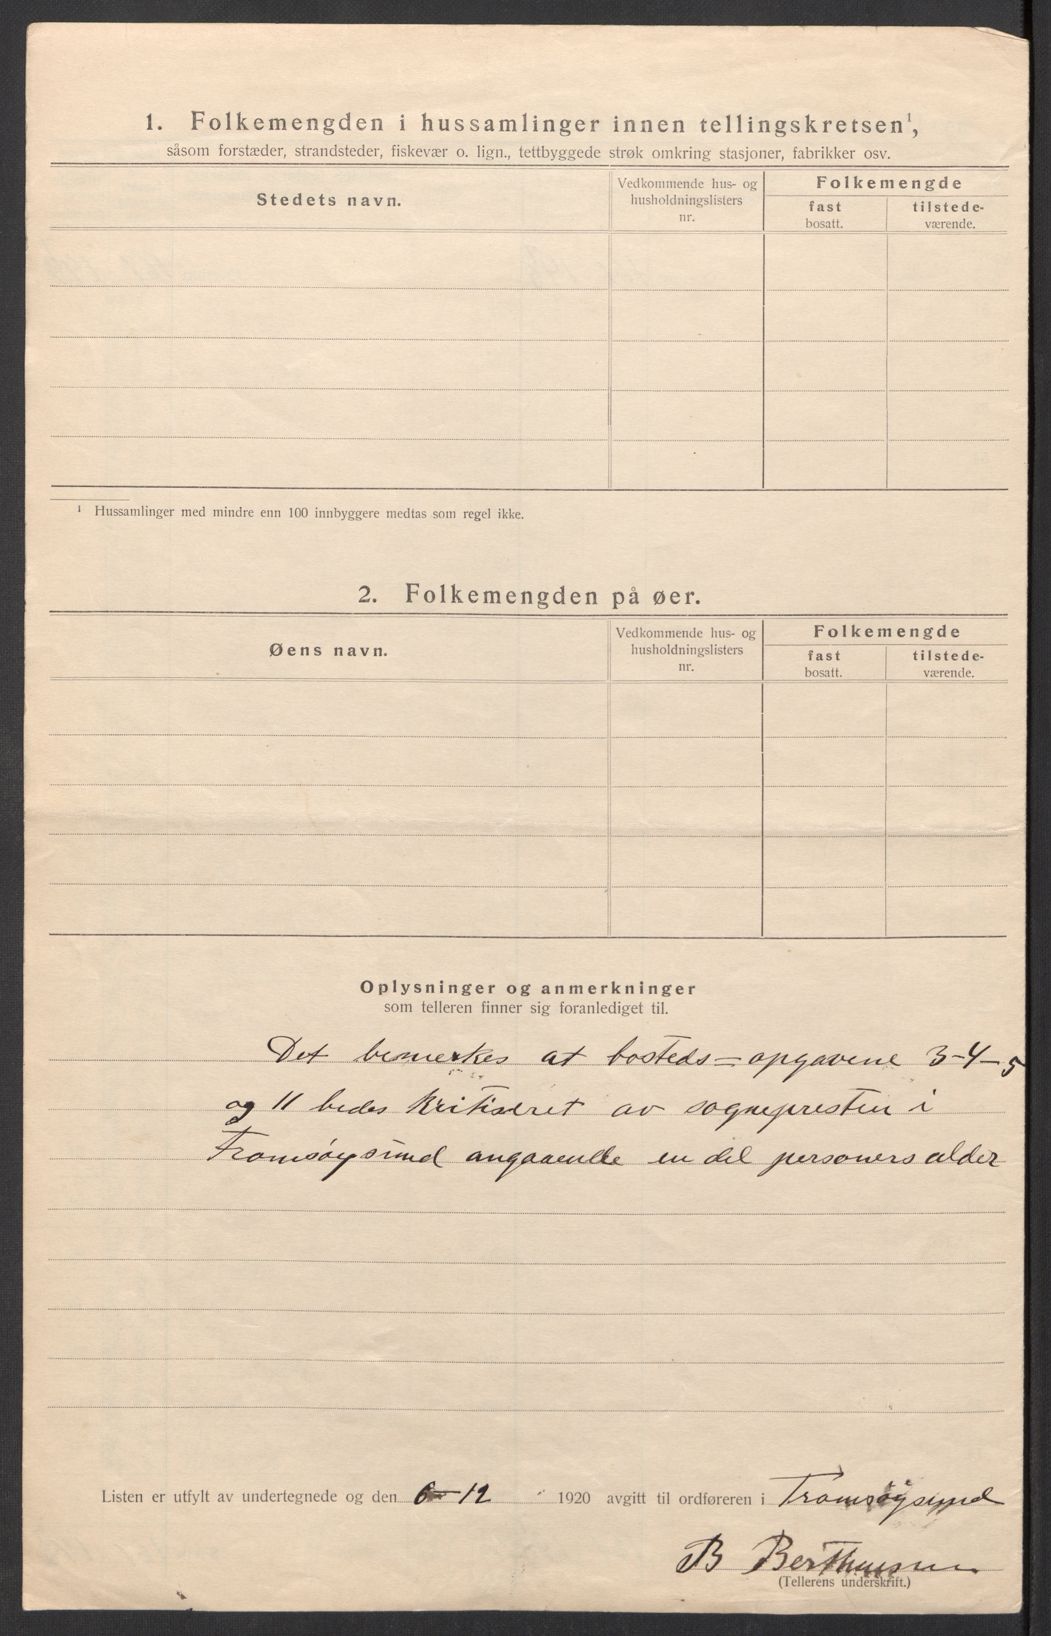 1. Folkemengden i hussamlinger innen tellingskretsen¹,
såsom forstæder, strandsteder, fiskevær o. lign., tettbyggede strøk omkring stasjoner, fabrikker osv.
Stedets navn.
Vedkommende hus- og
husholdningslisters
nr.
Folkemengde
fast
bosatt.
tilstede-
værende.
¹ Hussamlinger med mindre enn 100 innbyggere medtas som regel ikke.
2. Folkemengden på øer.
Øens navn.
Vedkommende hus- og
husholdningslisters
nr.
Folkemengde
fast
bosatt.
tilstede-
værende.
Oplysninger og anmerkninger
som telleren finner sig foranlediget til.
Det bemerkes at bosteds=opgavene 3-4-5
og 11 bedes kritiseret av sognepresten i
Tromsøysund angaaende en del personers alder
Listen er utfylt av undertegnede og den 6-12 1920 avgitt til ordføreren i Tromsøysund
B Bertheusen
(Tellerens underskrift.)